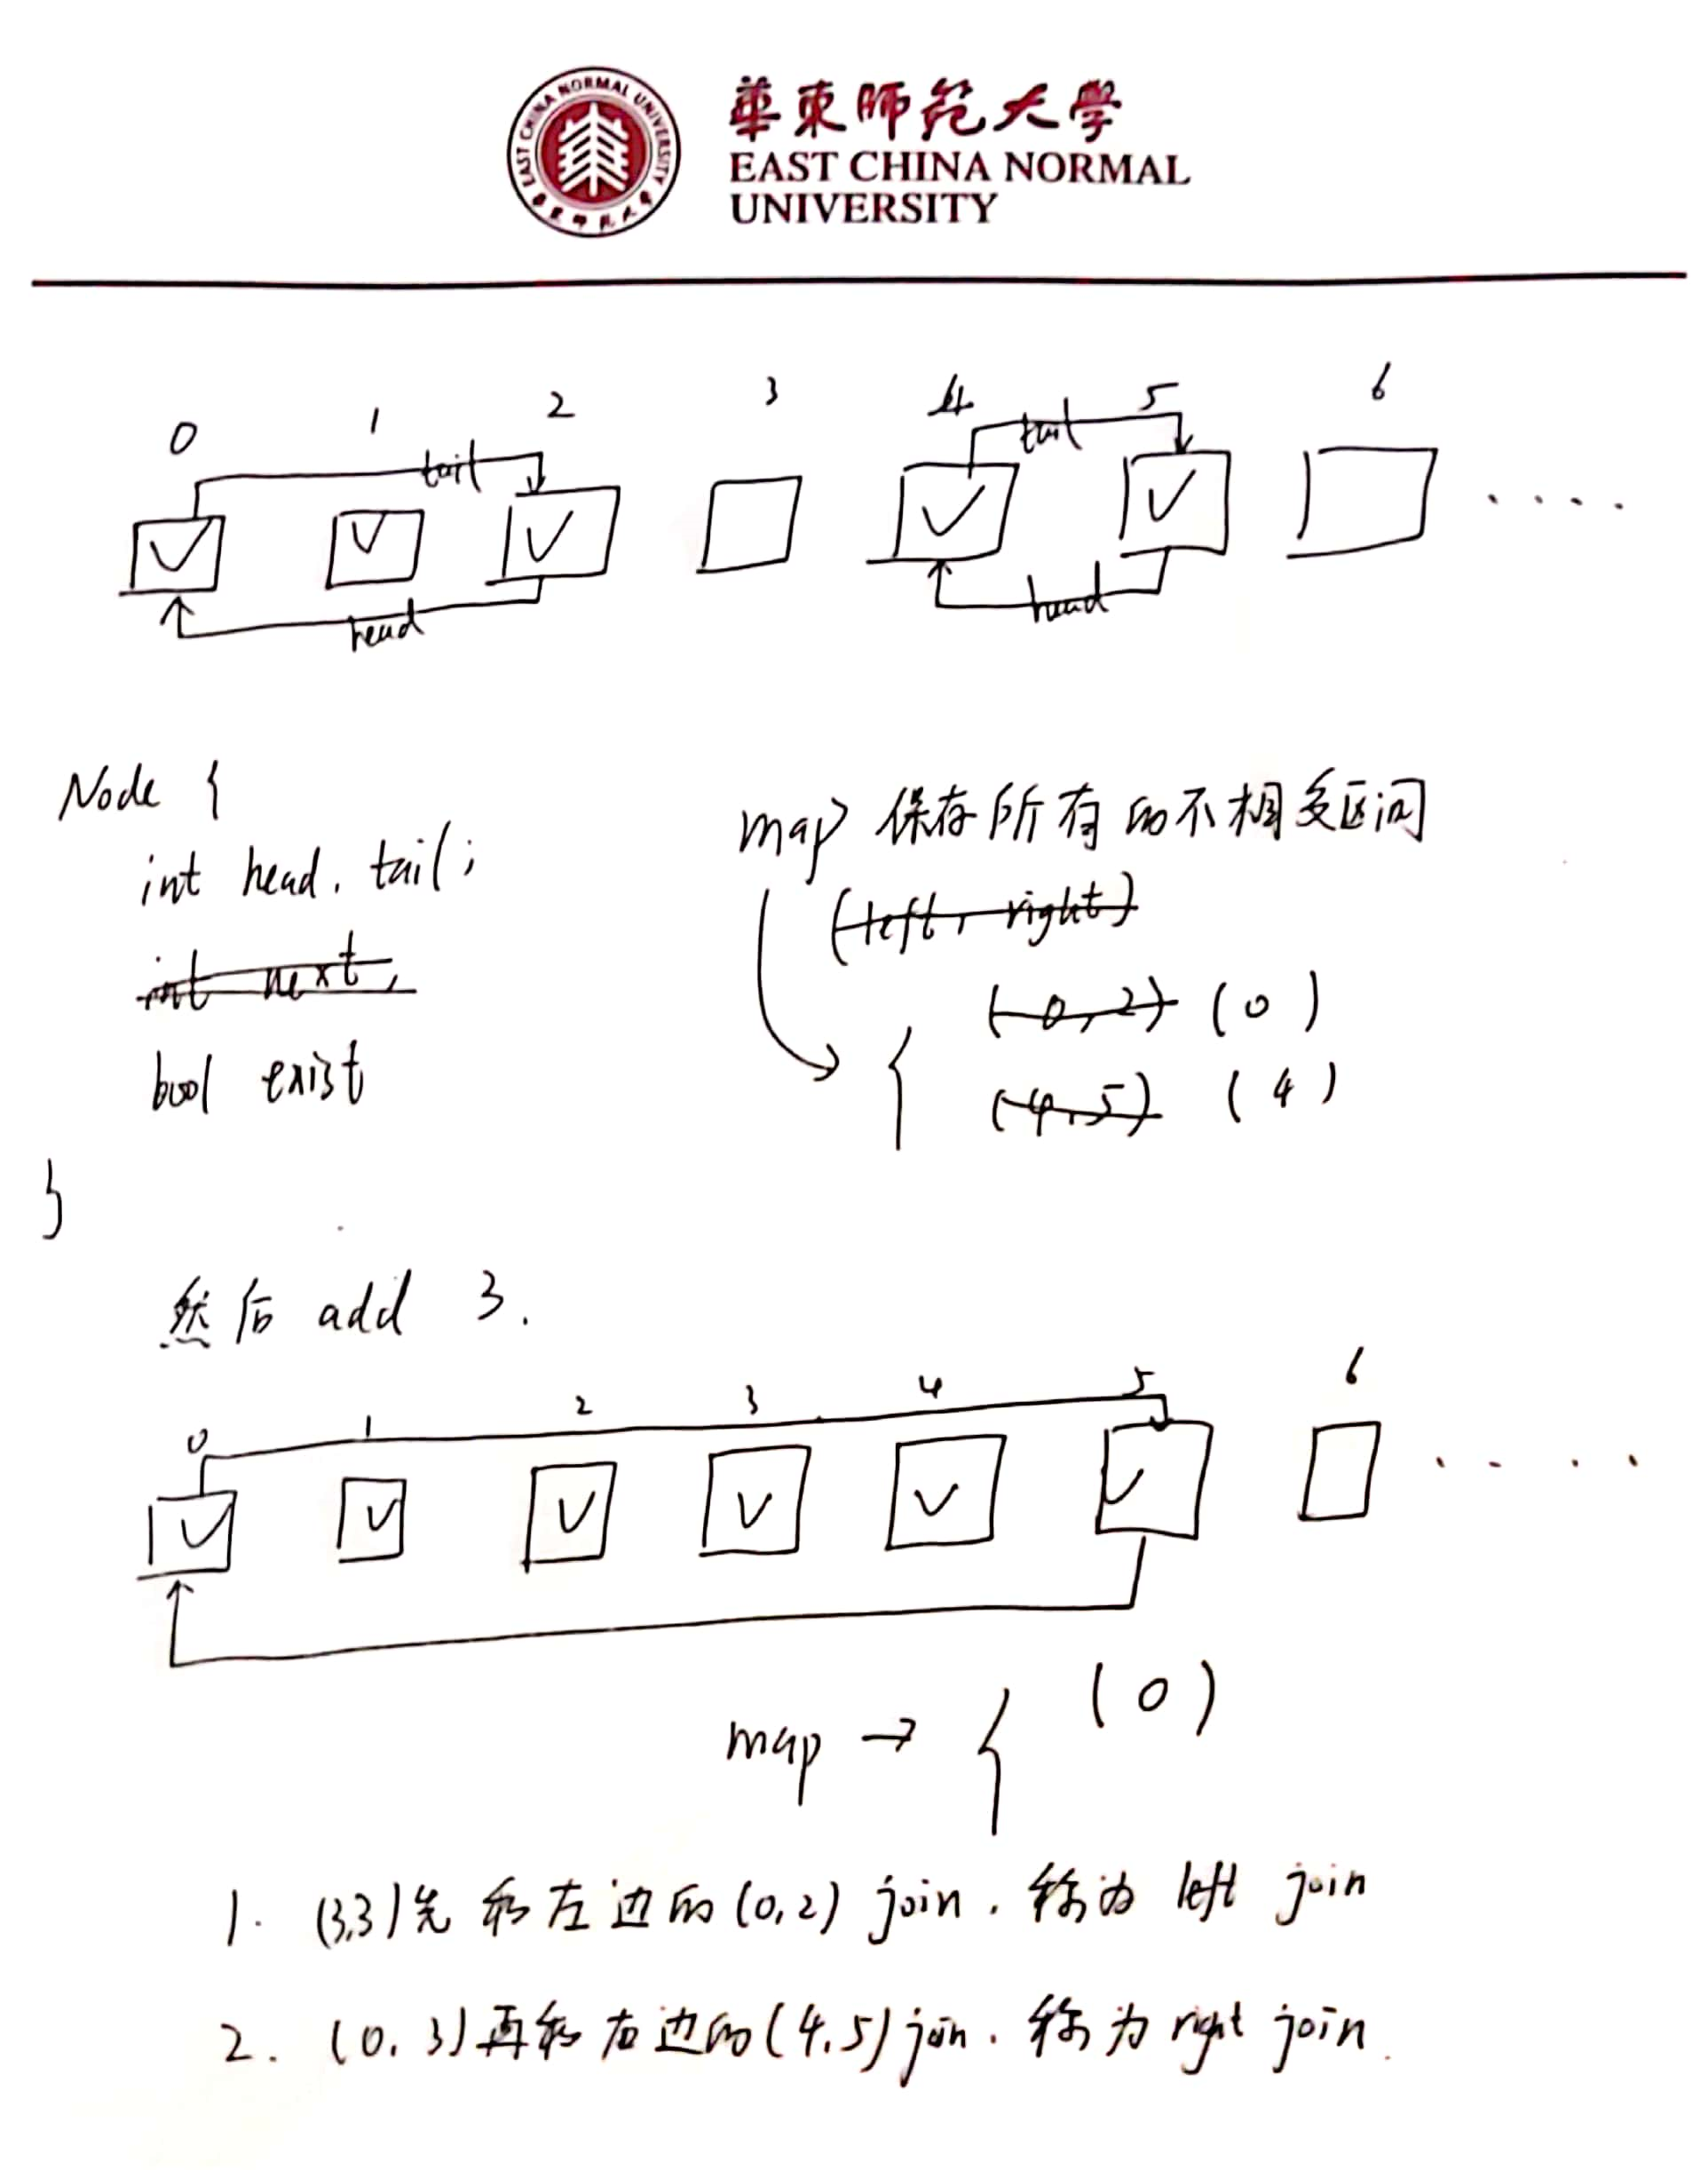 華東師范大學
EAST CHINA NORMAL
UNIVERSITY
EAST CHINA NORMAL UNIVERSITY
0 1 2 3 4 5 6
tail tail
head head
Node {
int head, tail;
int next,
bool exist
}
map 保存所有的不相交区间
(left, right)
(0, 2) (0)
(4, 5) (4)
然后 add 3.
0 1 2 3 4 5 6
map → { (0)
1. (3,3)先和左边的(0,2) join. 称为 left join
2. (0, 3)再和右边的(4,5)join. 称为 right join.